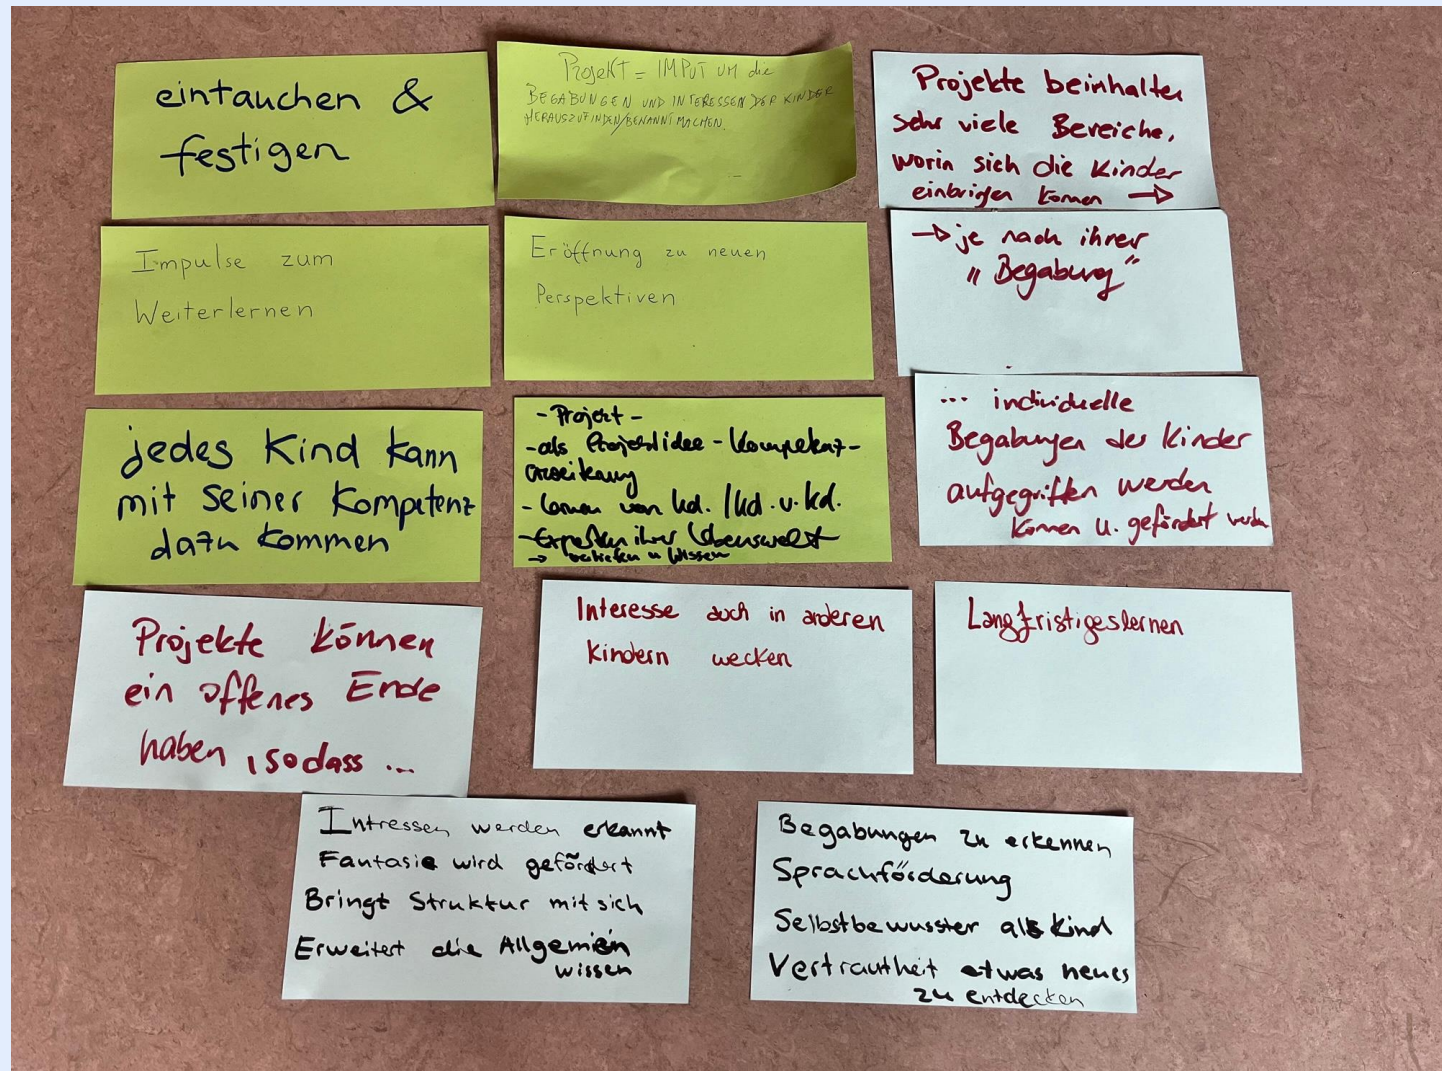 eintauchen &
festigen
Projekt = IMPUT UM die
BEGABUNGEN UND INTERESSEN DER KINDER
HERAUSZUFINDEN/BENANNT MACHEN.
Projekte beinhalten
sehr viele Bereiche,
worin sich die Kinder
einbringen können →
Impulse zum
Weiterlernen
Eröffnung zu neuen
Perspektiven
→ je nach ihrer
"Begabung"
jedes Kind kann
mit seiner Kompetenz
dazu kommen
- Projekt -
- als Projektidee - Kompetenz-
- Lernen von Kd. / Kd. v. Kd.
- Experten ihrer Lebenswelt
→ vertiefen u Wissen
... individuelle
Begabungen der Kinder
aufgegriffen werden
können u. gefördert werden
Projekte können
ein offenes Ende
haben, sodass ...
Interesse auch in anderen
Kindern wecken
Langfristigeslernen
Intressen werden erkannt
Fantasie wird gefördert
Bringt Struktur mit sich
Erweitert die Allgemein
wissen
Begabungen zu erkennen
Sprachförderung
Selbstbewusster als Kind
Vertrautheit etwas neues
zu entdecken